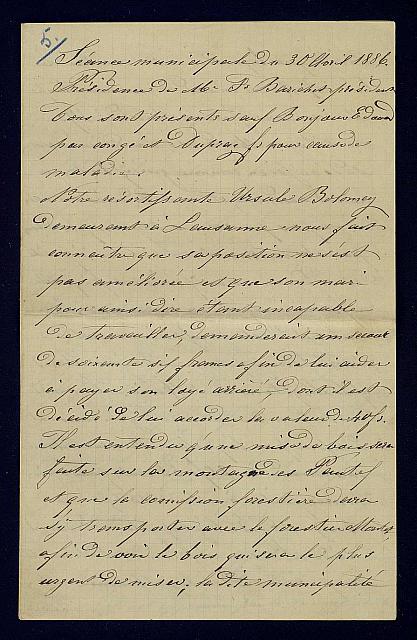 5.
Séance municipale du 30 Avril 1886.
Présidence de Mr. Fs Bariches président
Tous sont présents sauf Bonjour Edouard
par congé et Dupraz fs pour cause de
maladie.
Notre résortissante Ursule Bolomey
demeurant à Lausanne nous fait
connaître que sa position ne s'est
pas améliorée et que son mari
pour ainsi dire étant incapable
de travailler, demanderait un secour
de soixante six francs afin de lui aider
à payer son loyé arriéré, dont il est
décidé de lui accorder la valeur de 40 fs.
Il est entendu qu'une mise de bois sera
faite sur la montagne es
et que la comission forestière devra
s'y transporter avec le forestier
afin de voir le bois qui sera le plus
urgent de miser; la dite municipalité